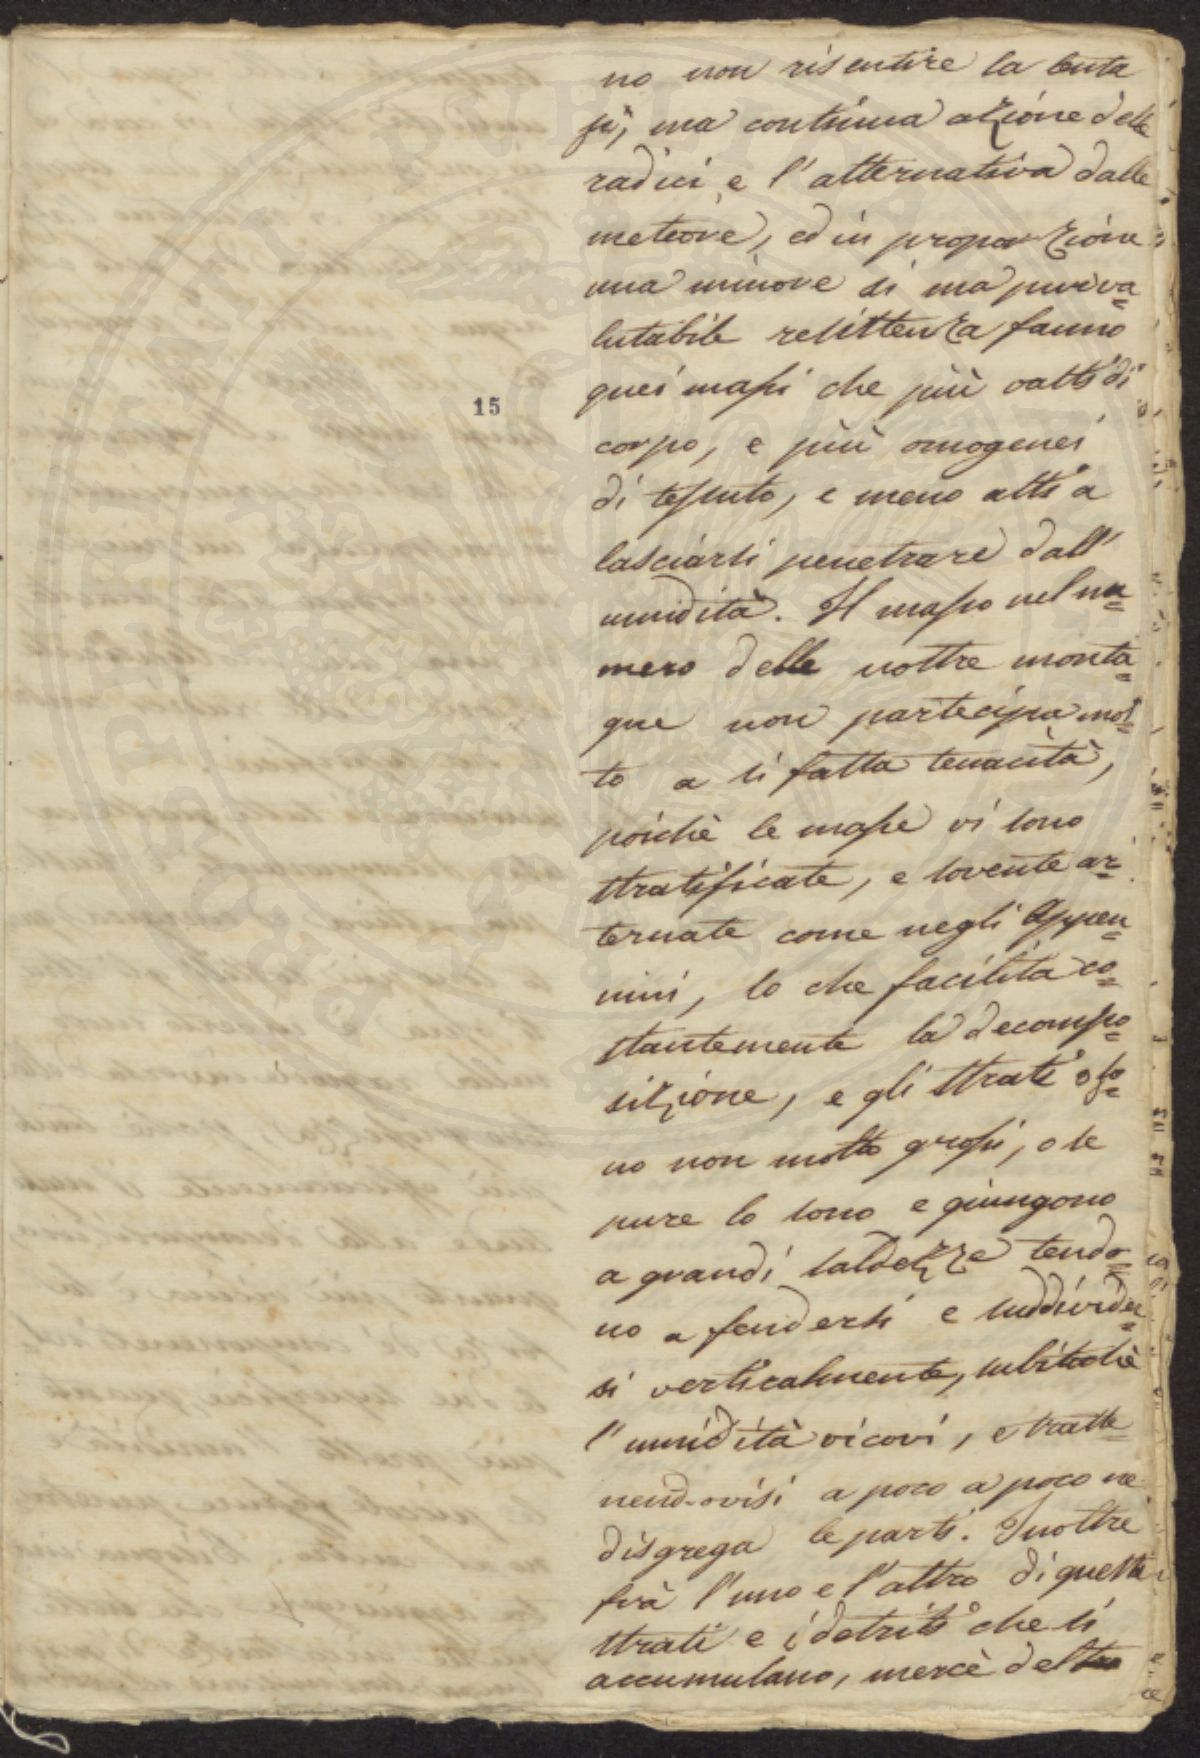 no non risentire la lenta
sì, ma continua azione delle
radici e l'alternativa dalle
meteore, ed in proporzione
una minore si ma pur va=
lutabile resistenza fanno
quei massi che più vasti di
corpo, e più omogenei
di tessuto, e meno atti a
lasciarsi penetrare dall'
umidità. Il masso nel nu=
mero delle nostre monta=
gne non partecipa mol=
to a si fatta tenacità,
poichè le masse vi sono
stratificate, e sovente al=
ternate come negli Appen=
nini, lo che facilita co=
stantemente la decompo=
sizione, e gli strati o so=
no non molto grossi, o se
pure lo sono e giungono
a grandi saldezze tendo=
no a fendersi e suddivider=
si verticalmente, subitochè
l'umidità vi covi, e tratte=
nendovisi a poco a poco ne
disgrega le parti. Inoltre
frà l'uno e l'altro di questi
strati e i detriti che si
accumulano, mercè del
15
PROSPICIENTI PVBLICA